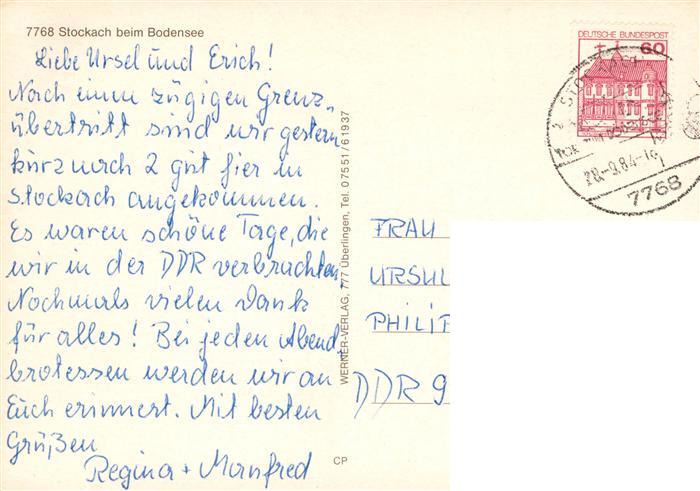 7768 Stockach beim Bodensee
Liebe Ursel und Erich!
Nach einem zügigen Grenz-
übertritt sind wir gestern
kurz nach 2 gut hier in
Stockach angekommen.
Es waren schöne Tage, die
wir in der DDR verbrachten.
Nochmals vielen Dank
für alles! Bei jedem Abend-
brotessen werden wir an
Euch erinnert. Mit besten
Grüßen
Regina + Manfred
WERNER-VERLAG, 777 Überlingen, Tel. 07551/61937
CP
DEUTSCHE BUNDESPOST
60
7768
FRAU
URSUL
PHILIP
DDR 9